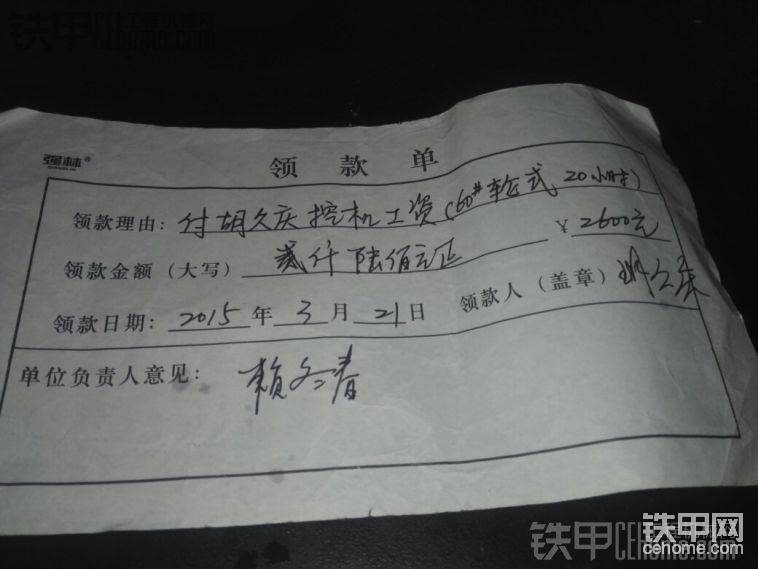 强林®
领款单
领款理由：付胡久庆挖机工资(60#轮式 20小时)
领款金额（大写）贰仟陆佰元正 ¥2600元
领款日期：2015年3月21日 领款人（盖章）胡久庆
单位负责人意见：赖冬春
铁甲网
cehome.com